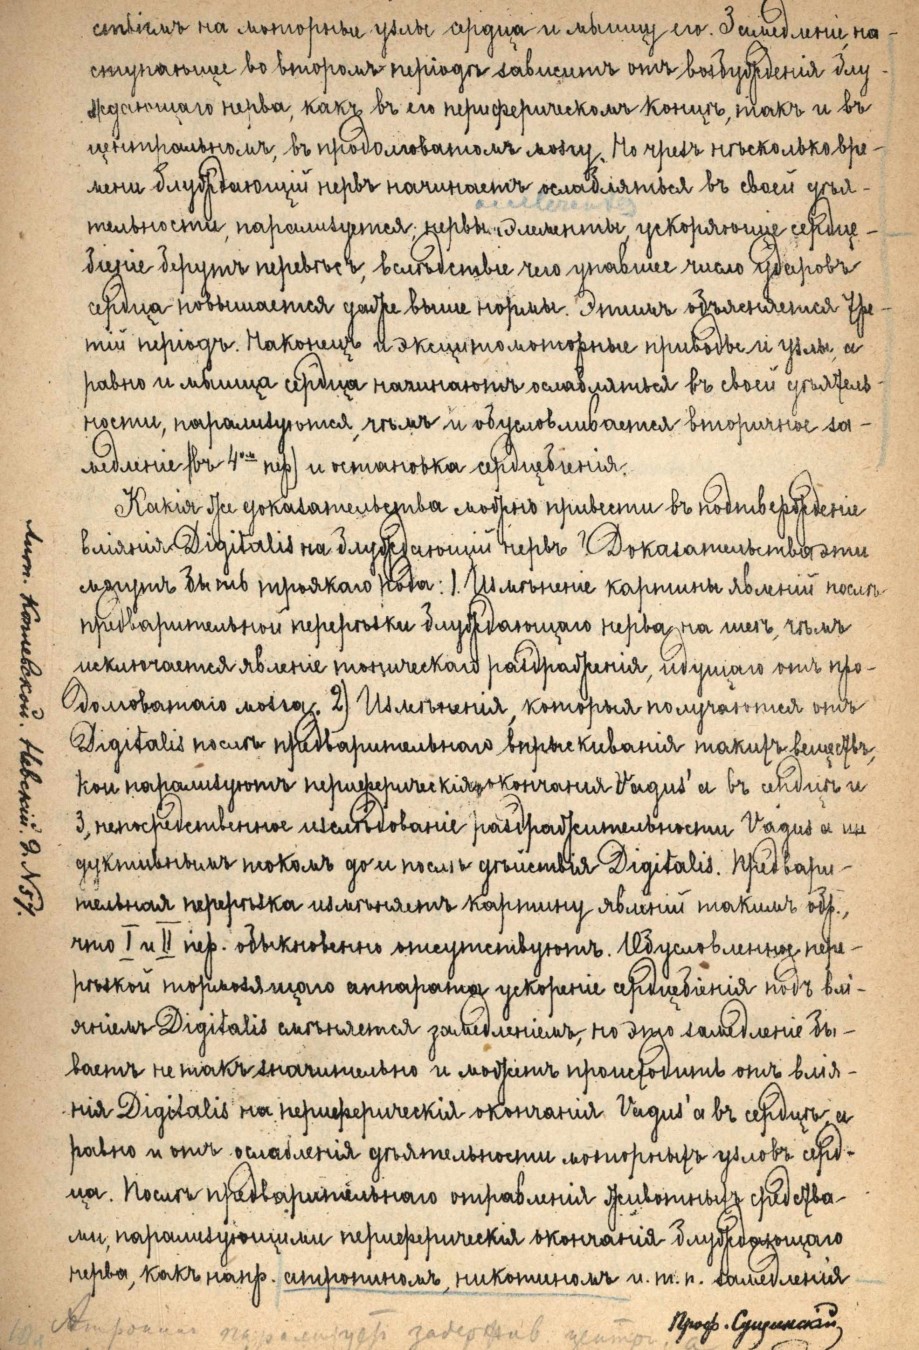 ствіемъ на моторные узлы сердца и мышцу его. Замедленіе, на-
ступающее во второмъ періодѣ зависитъ отъ возбужденія блу-
ждающаго нерва, какъ въ его периферическомъ концѣ, такъ и въ
центральномъ, въ продолговатомъ мозгу. Но чрезъ нѣсколько вре-
мени блуждающій нервъ начинаетъ ослабляться въ своей дѣя-
тельности, парализуется; нервн. элементы, ускоряющіе сердце-
біеніе берутъ перевѣсъ, вслѣдствіе чего упавшее число ударовъ
сердца повышается даже выше нормы. Этимъ объясняется тре-
тій періодъ. Наконецъ и эксцитомоторные приводы и узлы, а
равно и мышца сердца начинаютъ ослабляться въ своей дѣятель-
ности, парализуются, чѣмъ и обусловливается вторичное за-
медленіе (въ 4омъ пер) и остановка сердцебіенія.
Какія же доказательства можно привести въ подтвержденіе
вліянія Digitalis на блуждающій нервъ? Доказательства эти
могутъ быть троякаго рода: 1. Измѣненіе картины явленій послѣ
предварительной перерѣзки блуждающаго нерва на шеѣ, чѣмъ
исключается явленіе тоническаго раздраженія, идущаго отъ про-
долговатаго мозга. 2) Измѣненія, которыя получаются отъ
Digitalis послѣ предварительнаго впрыскиванія такихъ веществъ,
кои парализуютъ периферическія окончанія Vagus'а въ сердцѣ и
3, непосредственное изслѣдованіе раздражительности Vagus'а ин
дуктивнымъ токомъ до и послѣ дѣйствія Digitalis. Предвари-
тельная перерѣзка измѣняетъ картину явленій такимъ обр.,
что I и II пер. обыкновенно отсутствуютъ. Обусловленное пере-
рѣзкой тормозящаго аппарата ускореніе сердцебіенія подъ влі-
яніемъ Digitalis смѣняется замедленіемъ, но это замедленіе бы-
ваетъ не такъ значительно и можетъ происходить отъ влія-
нія Digitalis на периферическія окончанія Vagus'а въ сердцѣ, а
равно и отъ ослабленія дѣятельности моторныхъ узловъ серд-
ца. Послѣ предварительнаго отравленія животныхъ средства-
ми, парализующими периферическія окончанія блуждающаго
нерва, какъ напр. атропиномъ, никотиномъ и. т. п. замедленія
Проф. Сущинскій
Атропин парализует задержив. центр.
Лит. Невскій. д. №57.